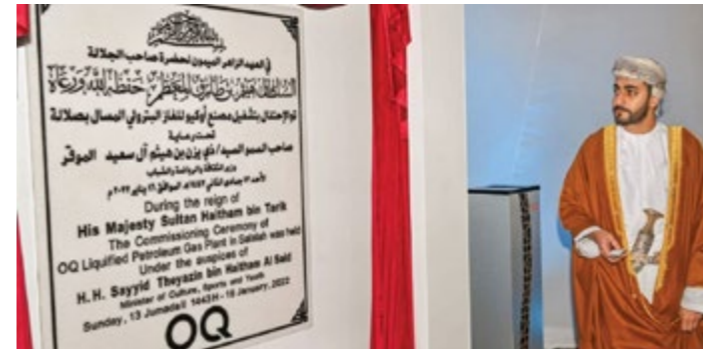 في العهد الزاهر الميمون لحضرة صاحب الجلالة
السلطان هيثم بن طارق المعظم حفظه الله ورعاه
تم الاحتفال بتشغيل مصنع أوكيو للغاز البترولي المسال بصلالة
تحت رعاية
صاحب السمو السيد/ ذي يزن بن هيثم آل سعيد الموقر
وزير الثقافة والرياضة والشباب
الأحد ١٣ جمادى الثاني ١٤٤٣هـ الموافق ١٦ يناير ٢٠٢٢م
During the reign of
His Majesty Sultan Haitham bin Tarik
The Commissioning Ceremony of
OQ Liquified Petroleum Gas Plant in Salalah was held
Under the auspices of
H.H. Sayyid Theyazin bin Haitham Al Said
Minister of Culture, Sports and Youth
Sunday, 13 Jumada II 1443H - 16 January, 2022
OQ